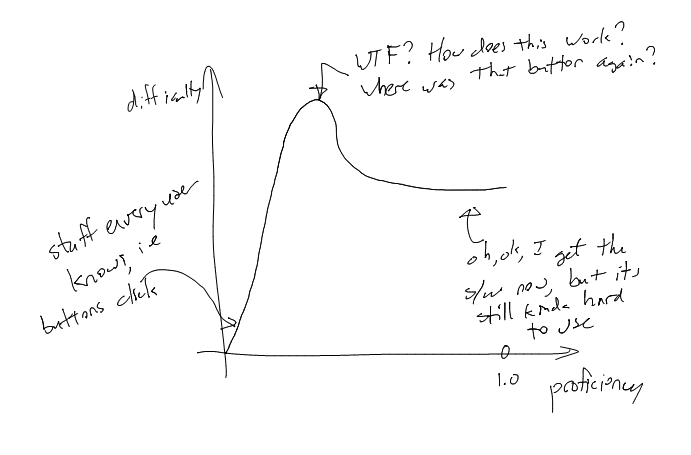 WTF? How does this work?
Where was that button again?
difficulty
stuff every user
knows, i.e
buttons click
oh, ok, I get the
s/w now, but its
still kinda hard
to use
1.0
proficiency